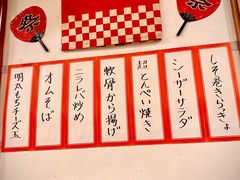 祭
祭
しそ巻きらっきょ
シーザーサラダ
超とんぺい焼き
軟骨から揚げ
ニラレバ炒め
オムそば
明太もちチーズ玉